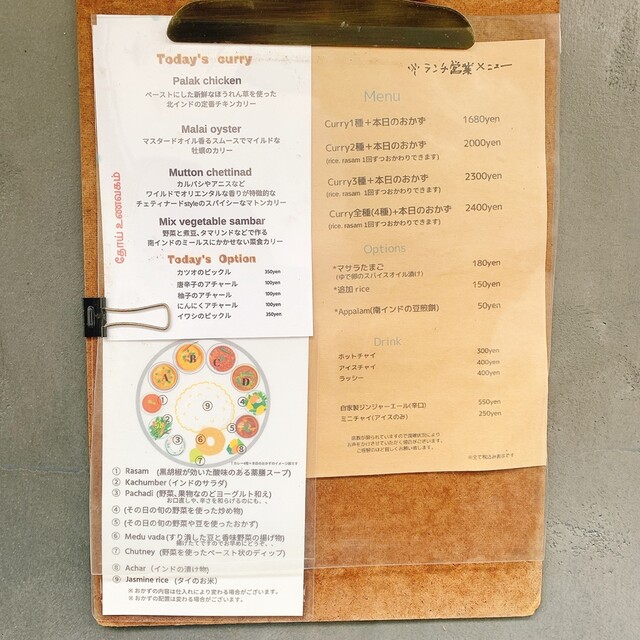 Today's curry
Palak chicken
ペーストにした新鮮なほうれん草を使った
北インドの定番チキンカリー
Malai oyster
マスタードオイル香るスムースでマイルドな
牡蠣のカリー
Mutton chettinad
カルパシやアニスなど
ワイルドでオリエンタルな香りが特徴的な
チェティナードstyleのスパイシーなマトンカリー
Mix vegetable sambar
野菜と煮豆、タマリンドなどで作る
南インドのミールスにかかせない菜食カリー
தோய் உணவகம்
Today's Option
カツオのピックル 350yen
唐辛子のアチャール 100yen
柚子のアチャール 100yen
にんにくアチャール 100yen
イワシのピックル 350yen
A
B
C
D
①
②
③
④
⑤
⑥
⑦
⑧
⑨
① Rasam (黒胡椒が効いた酸味のある薬膳スープ)
② Kachumber (インドのサラダ)
③ Pachadi (野菜、果物などのヨーグルト和え)
お口直しや、辛さを和らげるのにも、、
④ (その日の旬の野菜を使った炒め物)
⑤ (その日の旬の野菜や豆を使ったおかず)
⑥ Medu vada (すり潰した豆と香味野菜の揚げ物)
揚げたてですのでお早めにどうぞ、、
⑦ Chutney (野菜を使ったペースト状のディップ)
⑧ Achar (インドの漬け物)
⑨ Jasmine rice (タイのお米)
※おかずの内容は仕入れにより変わる場合がございます。
※おかずの配置は変わる場合がございます。
ランチ営業メニュー
Menu
Curry1種+本日のおかず 1680yen
Curry2種+本日のおかず 2000yen
(rice, rasam 1回ずつおかわりできます)
Curry3種+本日のおかず 2300yen
(rice, rasam 1回ずつおかわりできます)
Curry全種(4種)+本日のおかず 2400yen
(rice, rasam 1回ずつおかわりできます)
Options
*マサラたまご 180yen
(ゆで卵のスパイスオイル漬け)
*追加 rice 150yen
*Appalam(南インドの豆煎餅) 50yen
Drink
ホットチャイ 300yen
アイスチャイ 400yen
ラッシー 400yen
自家製ジンジャーエール(辛口) 550yen
ミニチャイ(アイスのみ) 250yen
※全て税込み表示です